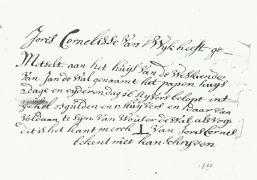 Joris Cornelisse van Wijk heeft ge
Metselt aen het huijs van de Weskinder
van Jan de Wal genaamt het papen huijs
dage en ijder en dag 16 stuijvers beloopt int
geheel gulden en stuijvers en daar van
voldaan te sijn van Wouter de Wal als voogt
dit is het hant merck ⊥ van Joris Cornel
bekent niet kan schrijven